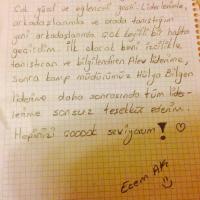 Çok güzel ve eğlenceli geçti. Liderlerimle,
arkadaşlarımla ve orada tanıştığım
yeni arkadaşlarımla çok keyifli bir hafta
geçirdim. İlk olarak beni izcilikle
tanıştıran ve bilgilendiren Alev liderime,
sonra kamp müdürümüz Hülya Bilgen
liderime daha sonrasında tüm lider-
lerime sonsuz teşekkür ederim.
Hepinizi sooook seviyorum! ♡
Ecem